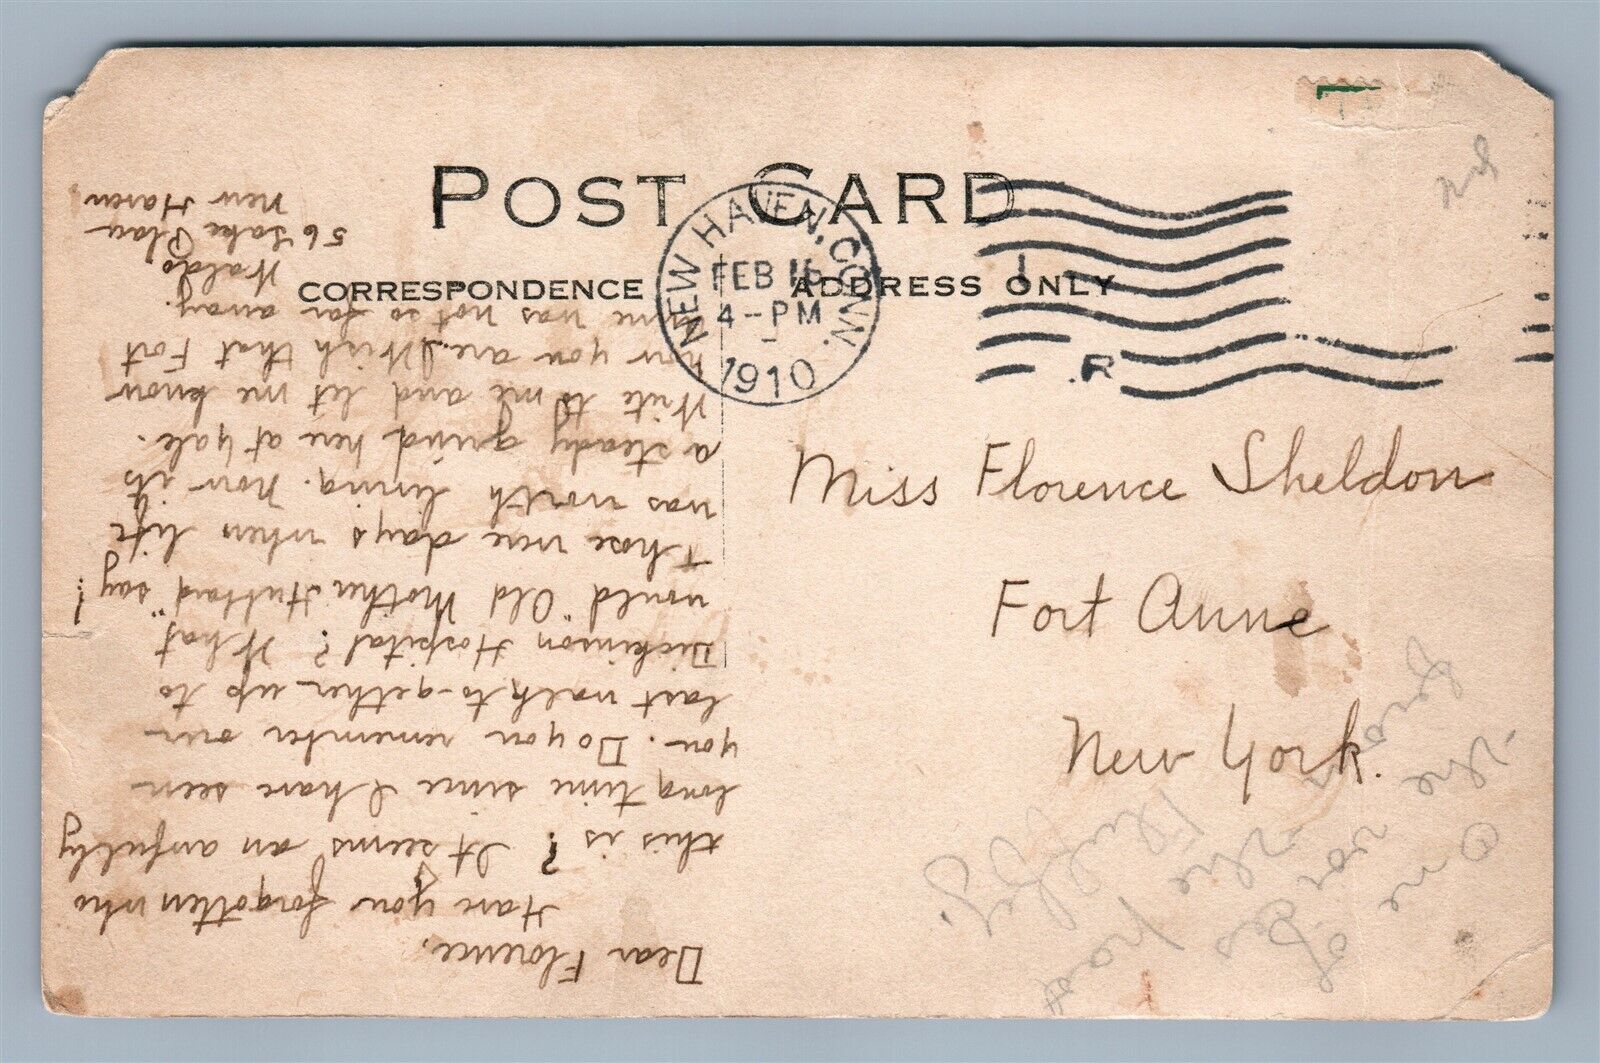 POST CARD
CORRESPONDENCE
ADDRESS ONLY
NEW HAVEN, CONN.
FEB 16
4-PM
1910
R
Miss Florence Sheldon
Fort Anne
New York.
Dear Florence,
Have you forgotten who
this is? It seems an awfully
long time since I have seen
you. Do you remember our
last walk to-gether up to
Dickinson Hospital? What
would "Old Mother Hubbard" say!
Those were days when life
was worth living. Now its
a steady grind here at Yale.
Write to me and let me know
how you are. I Wish that Fort
Anne was not so far away.
Waldo,
56 Lake Place
New Haven
One
the